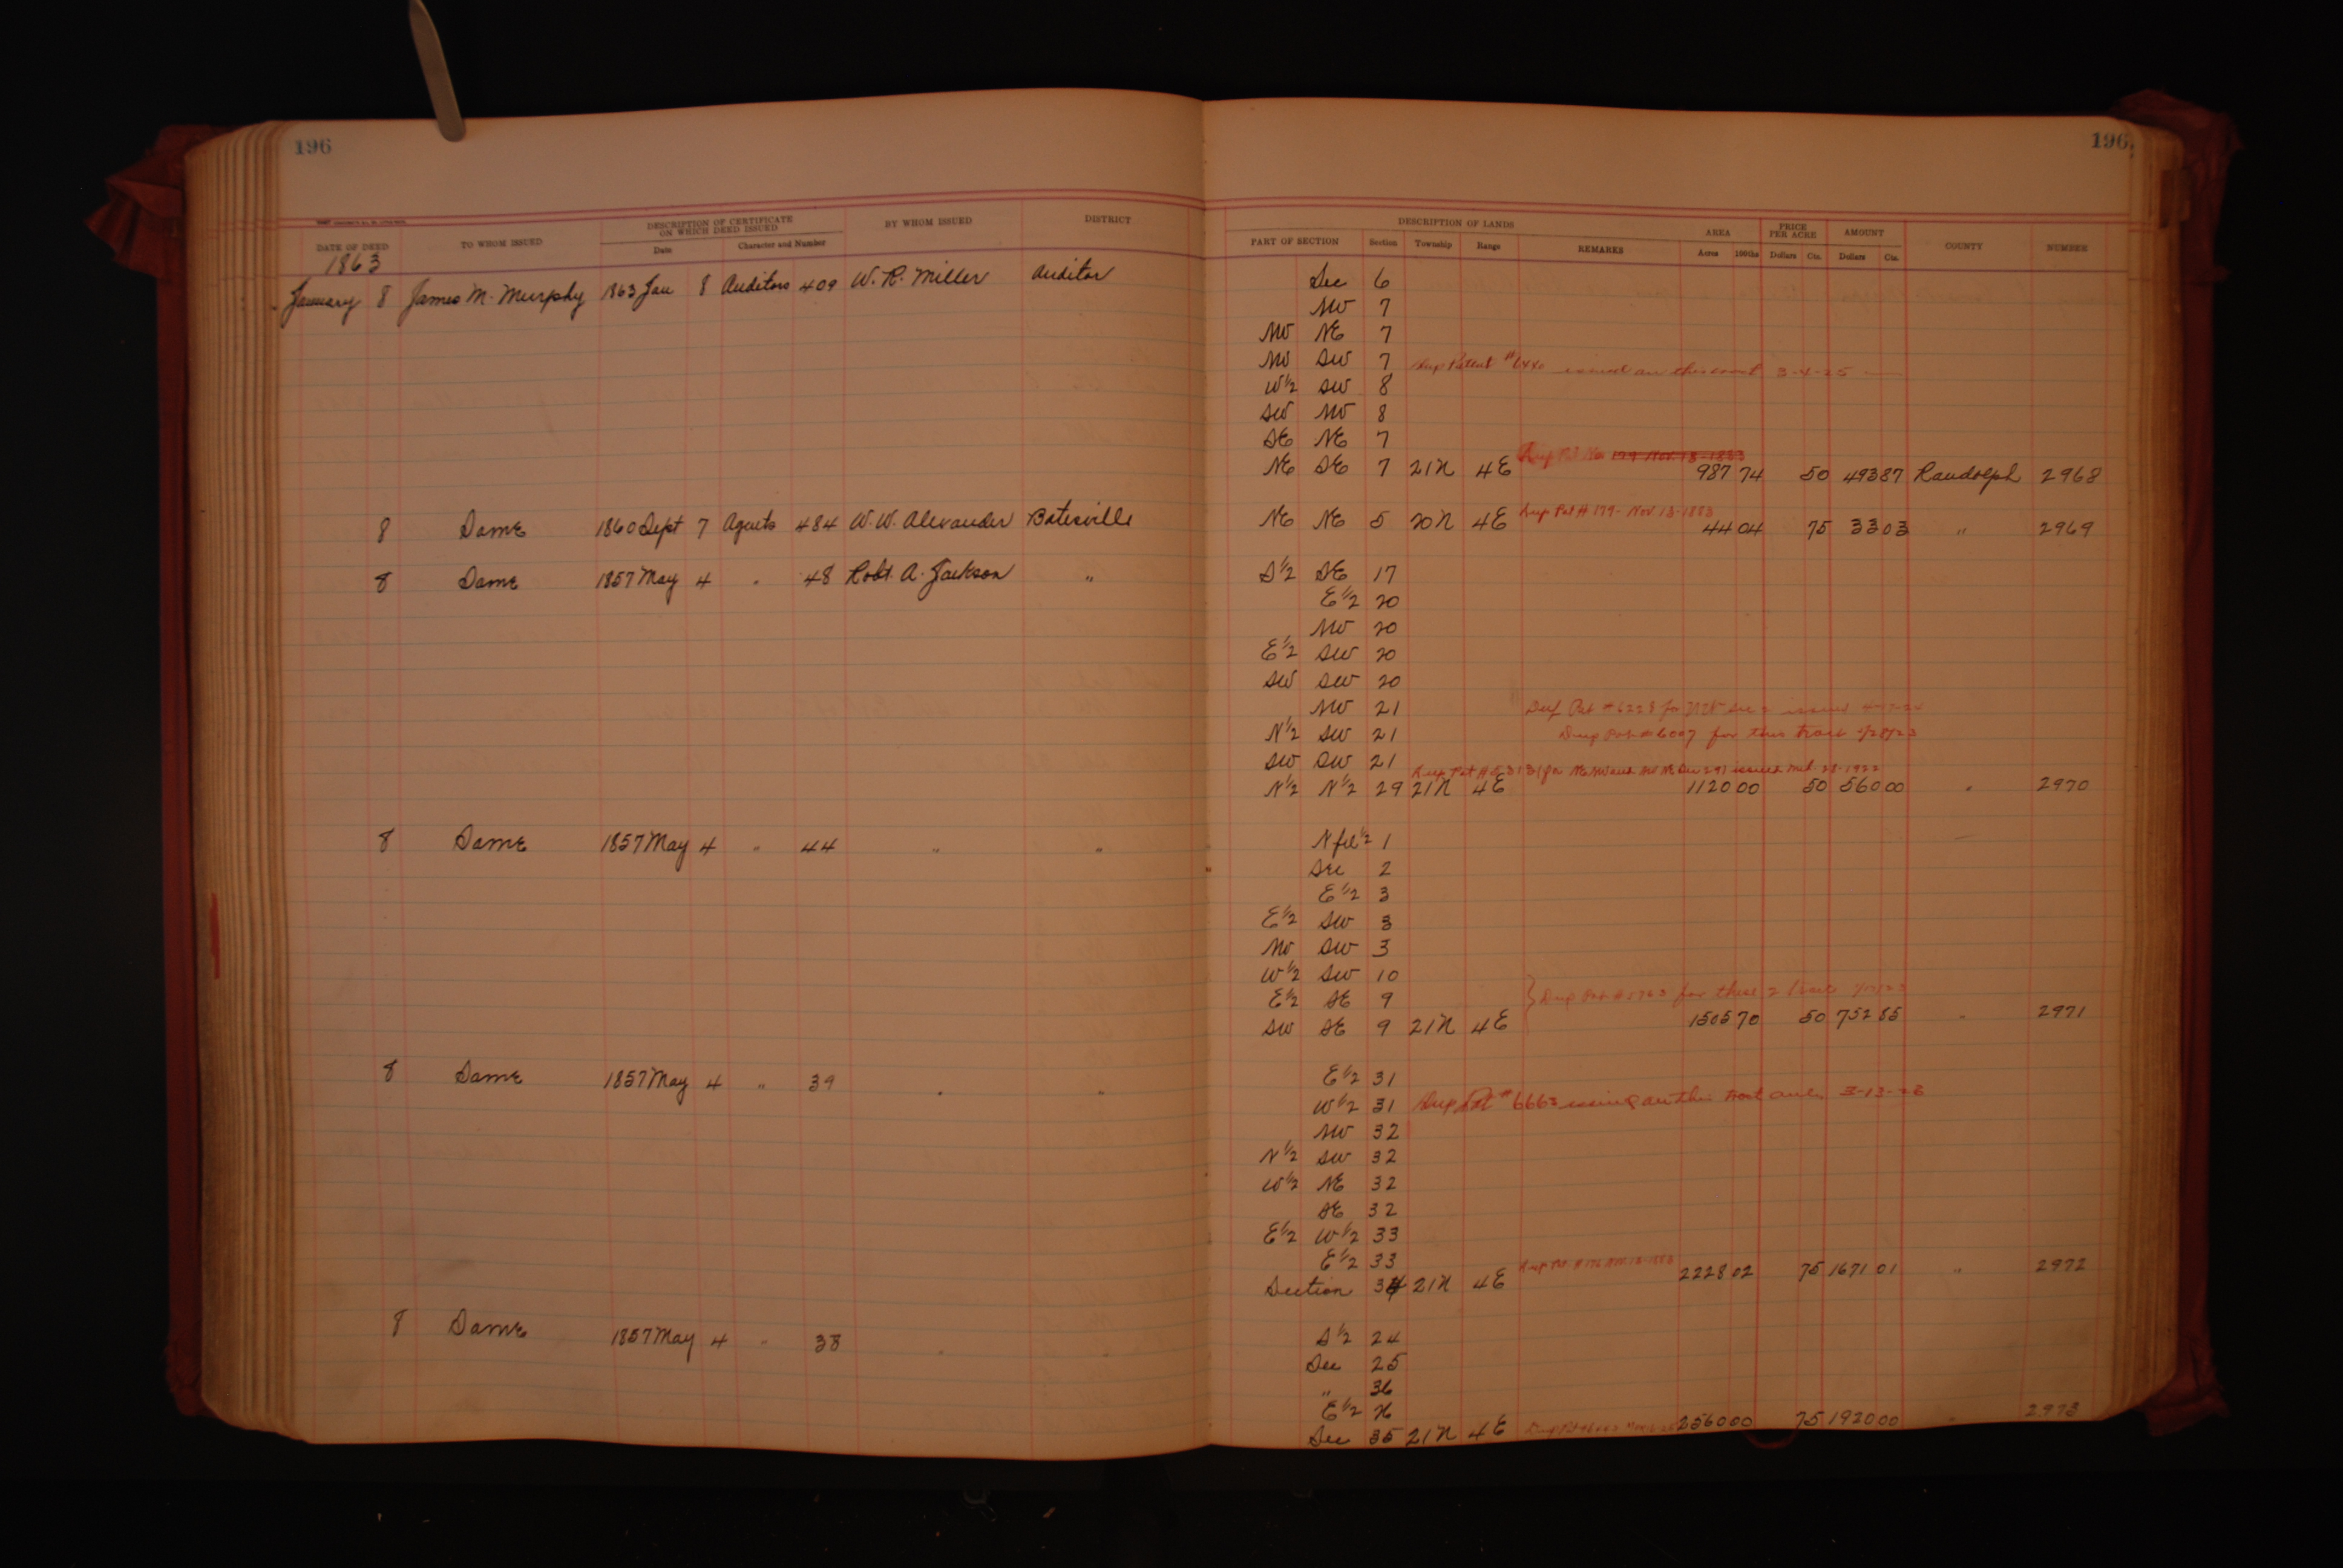 196
196
DESCRIPTION OF CERTIFICATE ON WHICH DEED ISSUED
BY WHOM ISSUED
DISTRICT
DATE OF DEED
TO WHOM ISSUED
Date
Character and Number
DESCRIPTION OF LANDS
AREA
PRICE PER ACRE
AMOUNT
PART OF SECTION
Section
Township
Range
REMARKS
Acres
100ths
Dollars
Cts.
Dollars
Cts.
COUNTY
NUMBER
1863
January 8 James M. Murphy 1863 Jan 8 Auditors 409 W. R. Miller Auditor Sec 6
NW 7
NW NE 7
NW SW 7 Dup Patent issued on this 3-4-25
W½ SW 8
SW NW 8
SE NE 7
179 Nov. 13-1883
NE SE 7 21N 4E 987 74 50 493 87 Randolph 2968
8 Same 1860 Sept 7 Agents 484 W. W. Alexander Batesville NE NE 5 20N 4E Dup Pat # 179- Nov 13-1883 44 04 75 33 03 " 2969
8 Same 1857 May 4 " 48 Robt. A. Jackson " S½ SE 17
E½ 20
NW 20
E½ SW 20
SW SW 20
NW 21
N½ SW 21 Dup Pat # for this tract
SW SW 21
N½ N½ 29 21N 4E 1120 00 50 560 00 " 2970
8 Same 1857 May 4 " 44 " " N frl ½ 1
Sec 2
E½ 3
E½ SW 3
NW SW 3
W½ SW 10
E½ SE 9 Dup Pat # for these 2
SW SE 9 21N 4E 1505 70 50 752 85 " 2971
8 Same 1857 May 4 " 39 " " E½ 31
W½ 31 Dup Pat # 6663 3-13-
NW 32
N½ SW 32
W½ NE 32
SE 32
E½ W½ 33
E½ 33
Section 34 21N 4E Dup Pat # 2228 02 75 1671 01 " 2972
8 Same 1857 May 4 " 38 " " S½ 24
Sec 25
" 36
E½ 26
Sec 35 21N 4E 2560 00 75 1920 00 " 2973